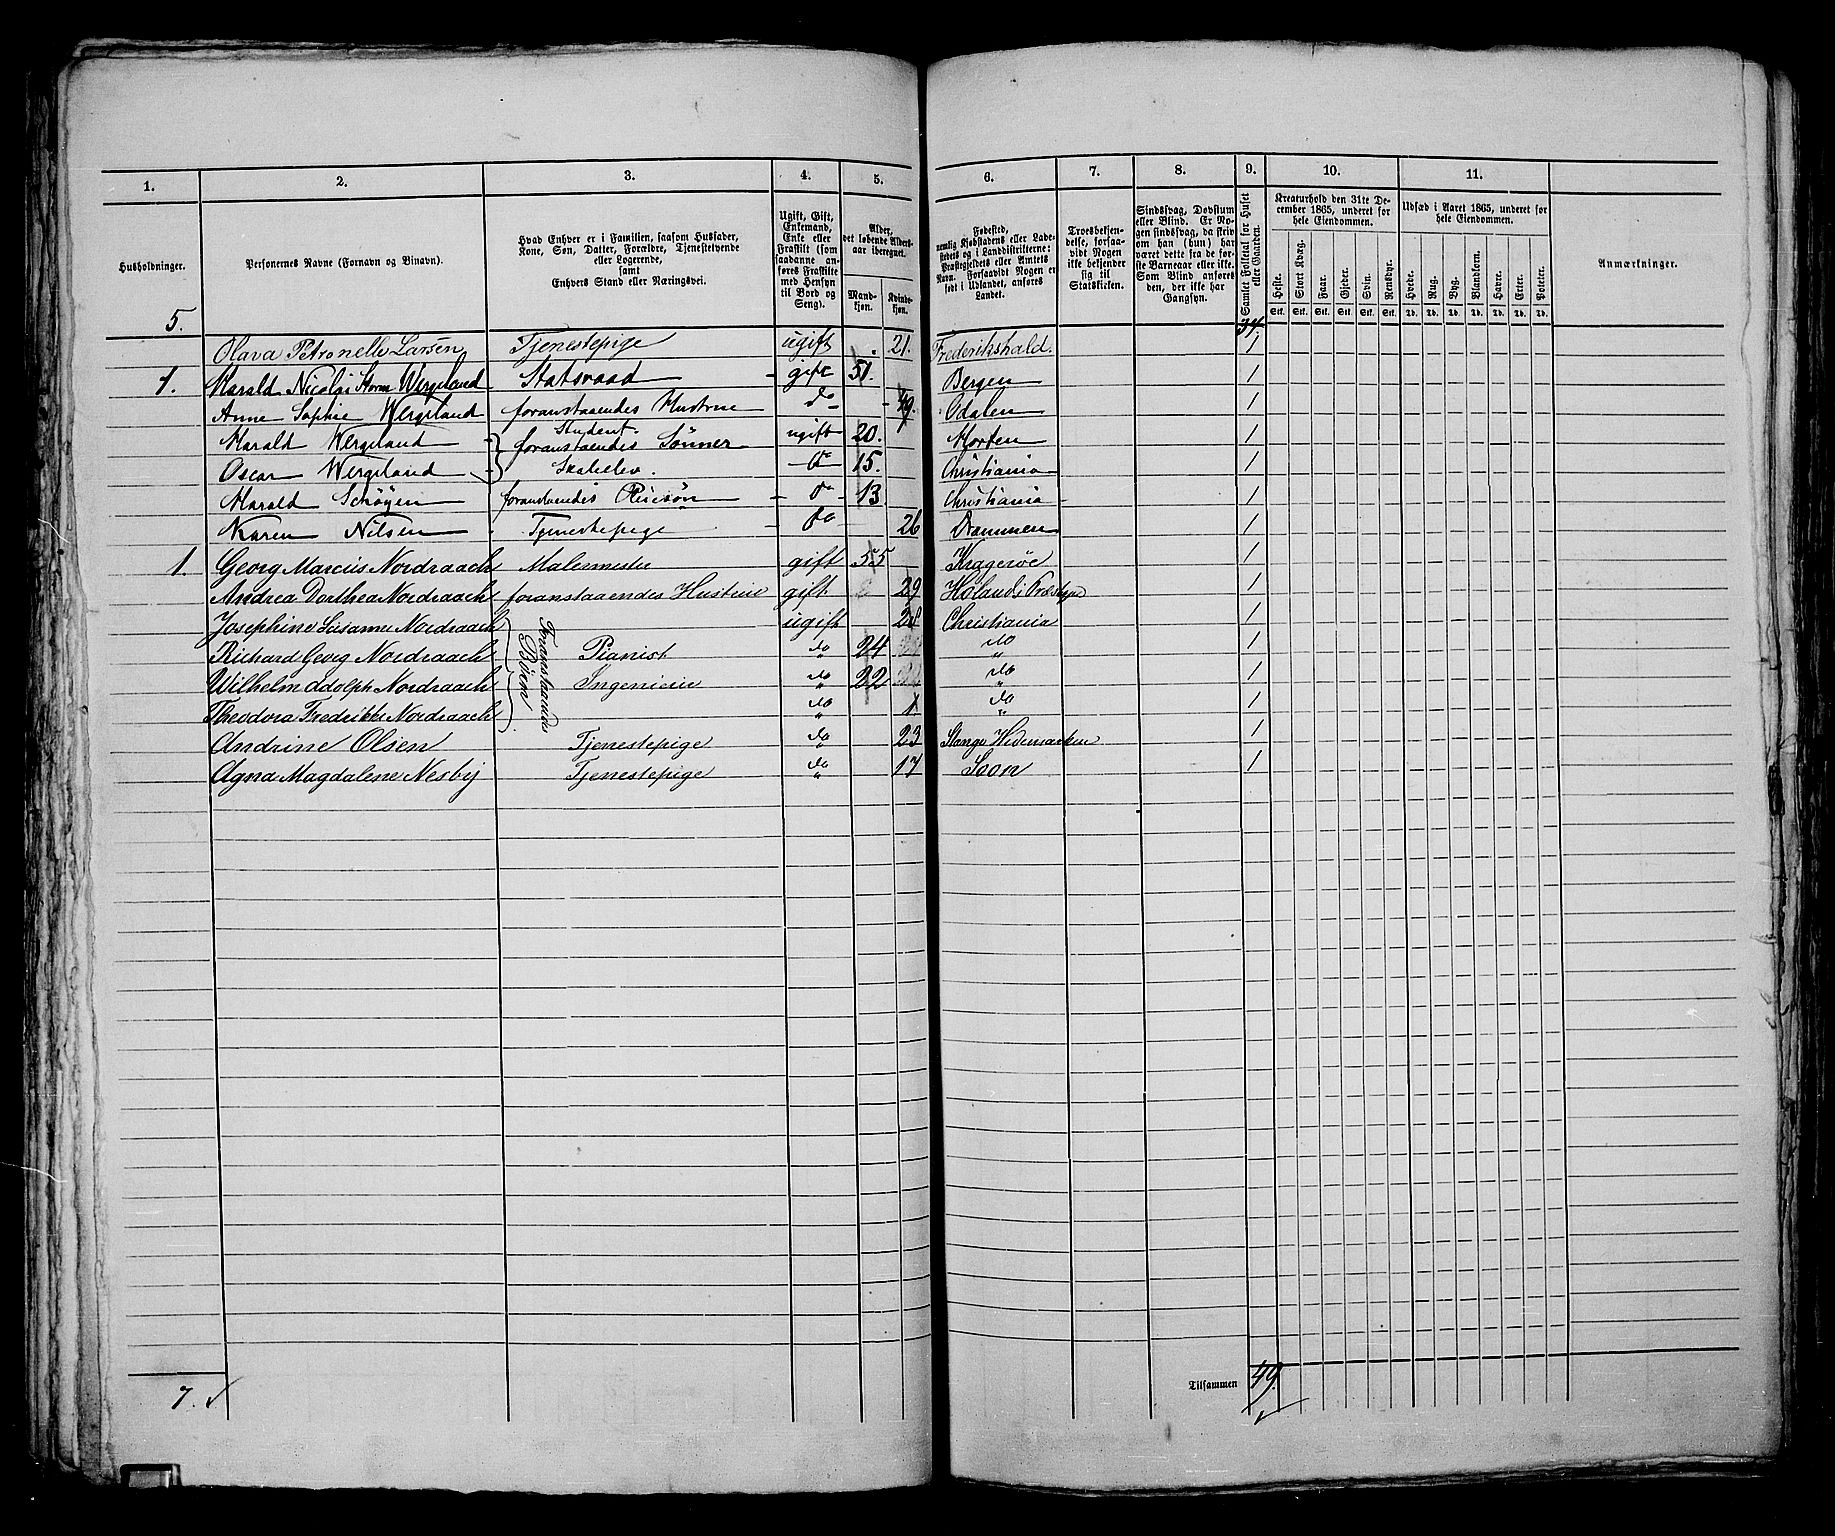 1. 2. 3. 4. 5. 6. 7. 8. 9. 10. 11.
Husholdninger.
Personernes Navne (Fornavn og Binavn).
Hvad Enhver er i Familien, saasom Husfader,
Kone, Søn, Datter, Forældre, Tjenestetyende
eller Logerende,
samt
Enhvers Stand eller Næringsvei.
Ugift, Gift,
Enkemand,
Enke eller
Fraskilt (som
saadanne an-
føres Fraskilte
med Hensyn
til Bord og
Seng).
Alder,
det løbende Alders-
aar iberegnet.
Mand-
kjøn.
Kvinde-
kjøn.
Fødested,
nemlig Kjøbstadens eller Lade-
stedets og i Landdistrikterne:
Præstegjeldets eller Amtets
Navn. Forsaavidt Nogen er
født i Udlandet, anføres
Landet.
Troesbekjen-
delse, forsaa-
vidt Nogen
ikke bekjender
sig til
Statskirken.
Sindssvag, Døvstum
eller Blind. Er No-
gen sindssvag, da skriv
om han (hun) har
været dette fra de før-
ste Barneaar eller ikke.
Som Blind anføres
den, der ikke har
Gangsyn.
Samlet Folketal for Huset
eller Gaarden.
Kreaturhold den 31te De-
cember 1865, underet for
hele Eiendommen.
Heste. Stort Kvæg. Faar. Gjeder. Svin. Rensdyr.
Stk. Stk. Stk. Stk. Stk. Stk.
Udsæd i Aaret 1865, underet for
hele Eiendommen.
Hvede. Rug. Byg. Blandkorn. Havre. Erter. Poteter.
Td. Td. Td. Td. Td. Td. Td.
Anmærkninger.
5. 34.
Olava Petronelle Larsen Tjenestepige ugift 21. Frederikshald. 1
1. Harald Nicolai Storm Wergeland Statsraad gift 51. Bergen 1
Anne Sophie Wergeland foranstaaendes Hustrue do 49. Odalen 1
Harald Wergeland Student foranstaaendes Sønner ugift 20. Horten 1
Oscar Wergeland Skoleelev. do 15. Christiania 1
Harald Schøyen foranstaaendes Pleiesøn do 13 Christiania 1
Karen Nilsen Tjenestepige do 26 Drammen 1
1. Georg Marcus Nordraach Malermester gift 55 Kragerøe 1
Andrea Dorthea Nordraach foranstaaendes Hustrue gift 29 Høland Præstegje 1
Josephine Susanne Nordraach Foranstaaendes Børn ugift 28 Christiania 1
Richard Georg Nordraach Pianist do 24 do 1
Wilhelm Adolph Nordraach Ingenieur do 22 do 1
Theodora Fredrikke Nordraach do 1 do 1
Andrine Olsen Tjenestepige do 23 Stange Hedemarken 1
Agna Magdalene Nesbÿ Tjenestepige do 17 Soon 1
7. Tilsammen 49.